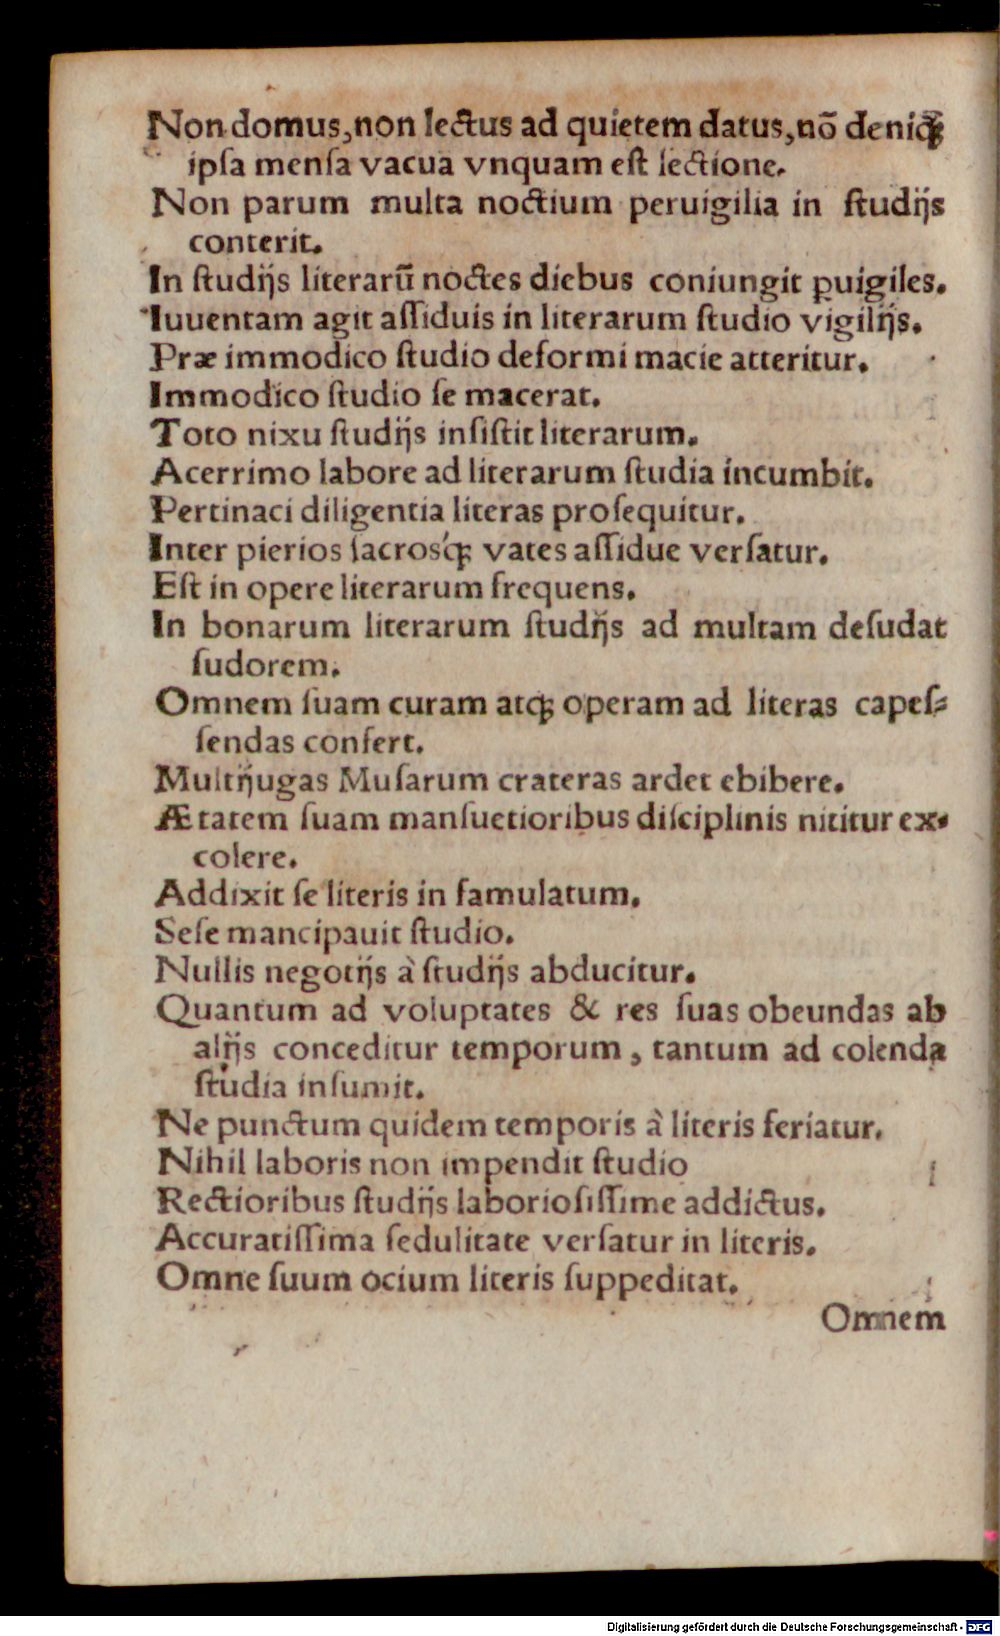 Non domus, non lectus ad quietem datus, nõ deniqꝫ
ipſa menſa vacua vnquam eſt lectione.
Non parum multa noctium peruigilia in ſtudijs
conterit.
In ſtudijs literarũ noctes diebus coniungit ꝑuigiles.
Iuuentam agit aſſiduis in literarum ſtudio vigilijs.
Præ immodico ſtudio deformi macie atteritur.
Immodico ſtudio ſe macerat.
Toto nixu ſtudijs inſiſtit literarum.
Acerrimo labore ad literarum ſtudia incumbit.
Pertinaci diligentia literas proſequitur.
Inter pierios ſacroſqꝫ vates aſſidue verſatur.
Eſt in opere literarum frequens.
In bonarum literarum ſtudijs ad multam deſudat
ſudorem.
Omnem ſuam curam atqꝫ operam ad literas capeſ⸗
ſendas confert.
Multijugas Muſarum crateras ardet ebibere.
Ætatem ſuam manſuetioribus diſciplinis nititur ex⸗
colere.
Addixit ſe literis in famulatum.
Seſe mancipauit ſtudio.
Nullis negotijs à ſtudijs abducitur.
Quantum ad voluptates & res ſuas obeundas ab
alijs conceditur temporum, tantum ad colenda
ſtudia inſumit.
Ne punctum quidem temporis à literis feriatur.
Nihil laboris non impendit ſtudio
Rectioribus ſtudijs laborioſiſſime addictus.
Accuratiſſima ſedulitate verſatur in literis.
Omne ſuum ocium literis ſuppeditat.
Omnem
Digitalisierung gefördert durch die Deutsche Forschungsgemeinschaft - DFG